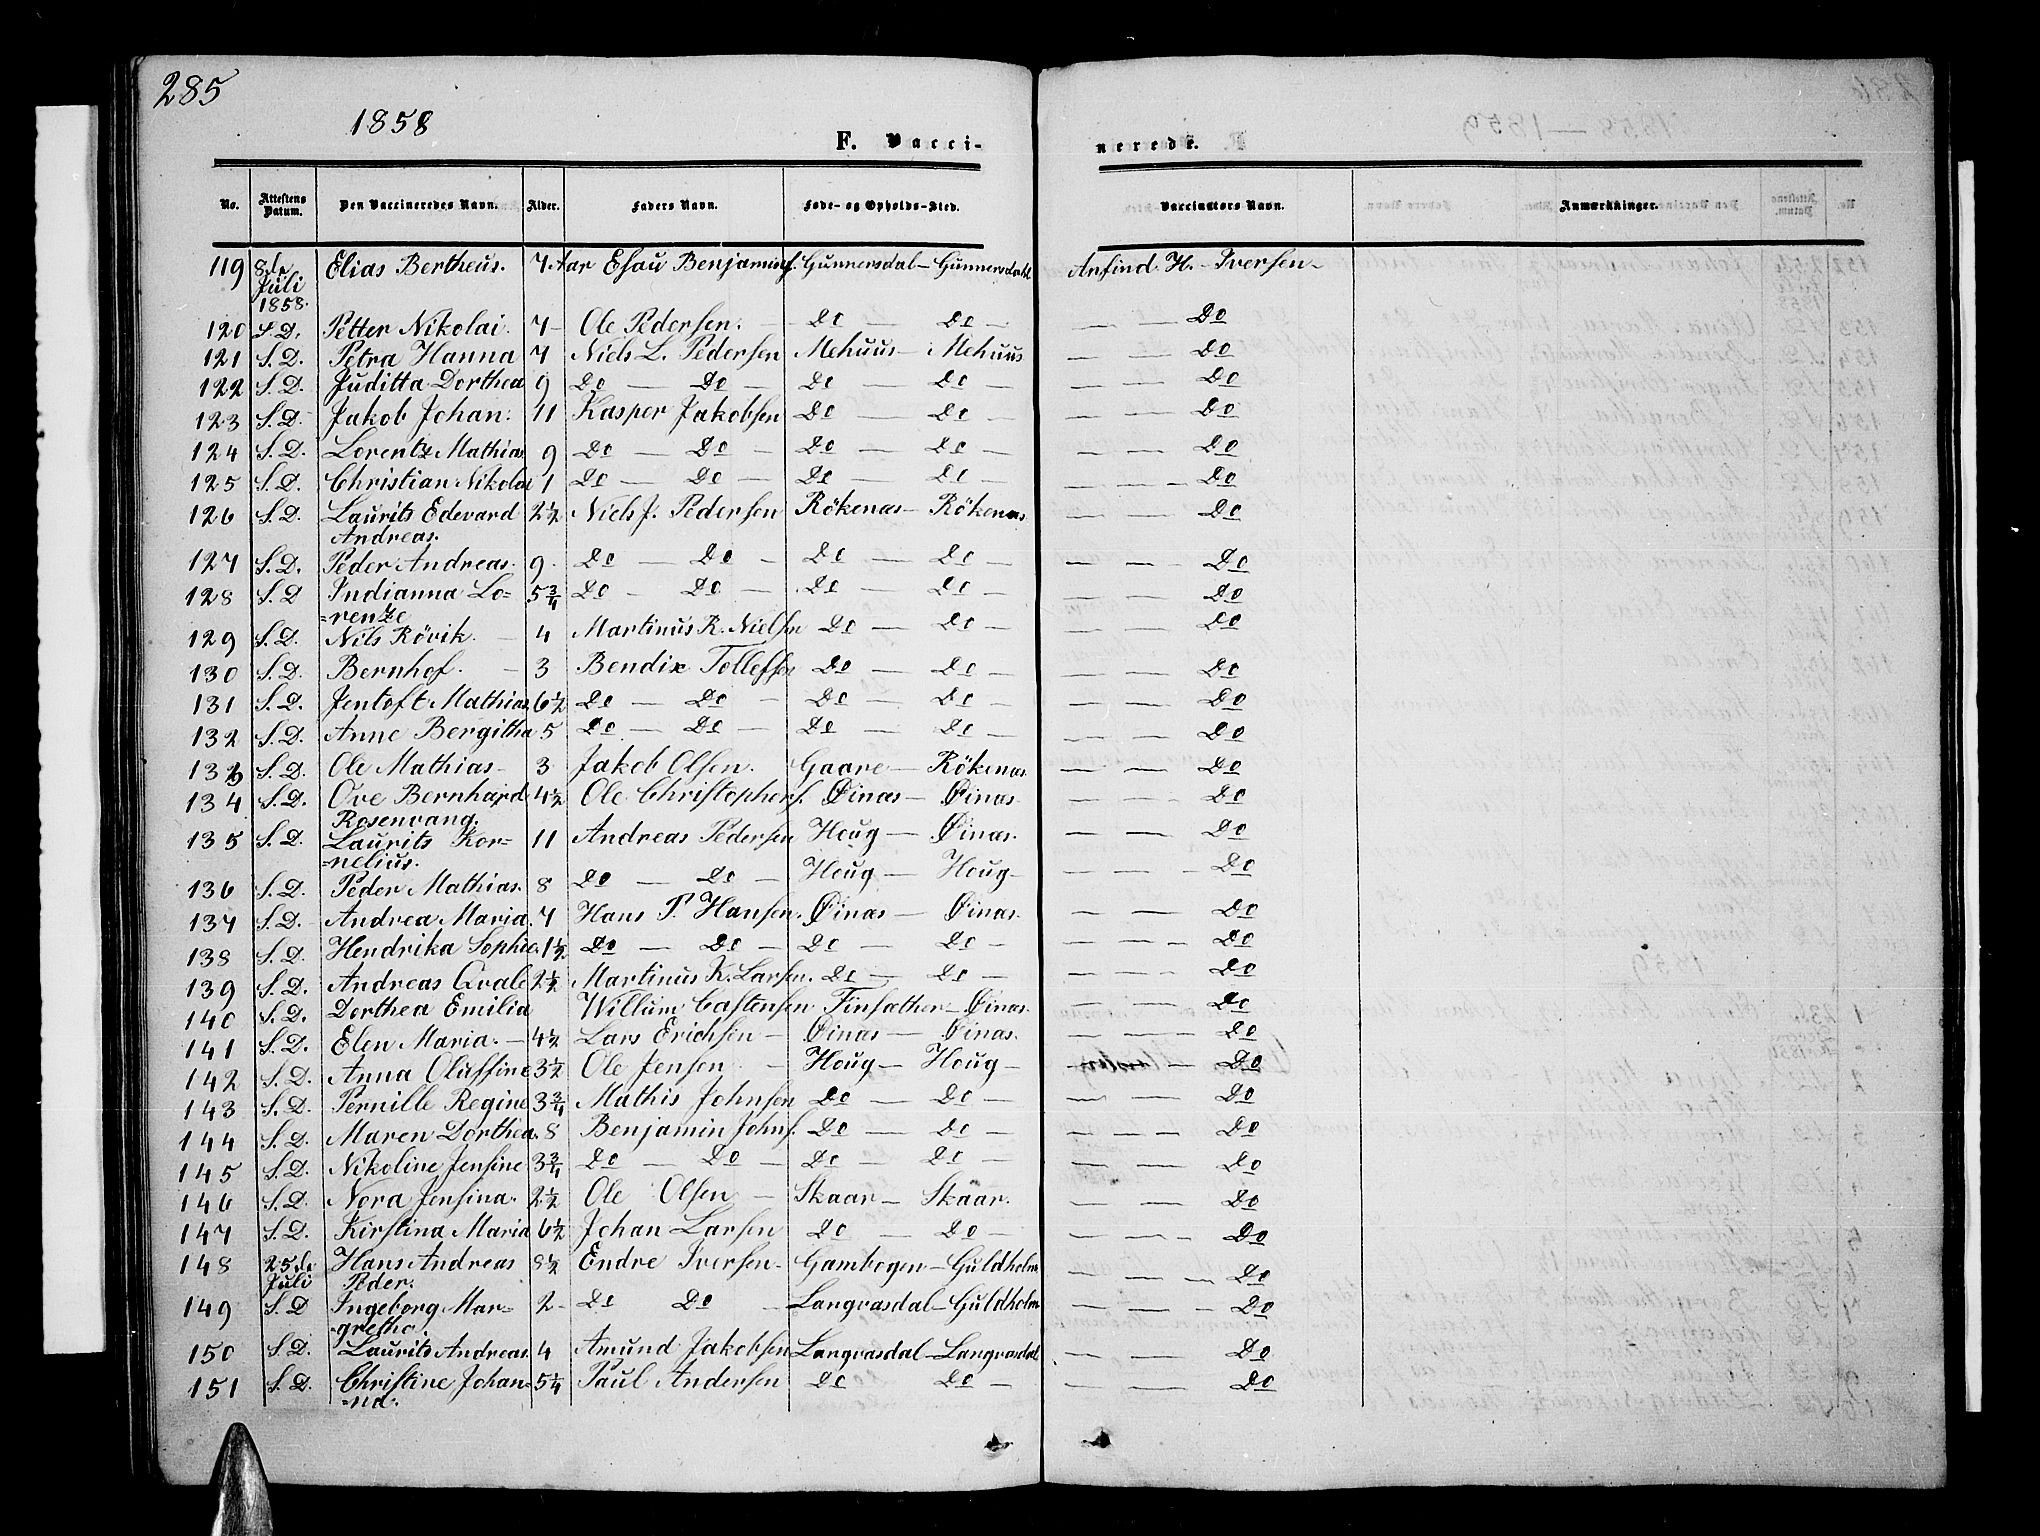 285
1858
F. Vacci-
nerede.
No. Attestens Datum. Den Vaccineredes Navn. Alder. Faders Navn. Føde- og Opholds-Sted. Vaccinators Navn. Anmærkninger.
119 8de Juli 1858. Elias Bertheus. 7 Aar Esau Benjaminsf. Gunnersdal — Gunnersdahl Anfind H. Iversen
120 S. D. Petter Nikolai. 7 — Ole Pedersen. — Do Do — — — Do
121 S. D. Petra Hanna 7 Niels L. Pedersen Mehuus — Mehuus — — Do
122 S. D. Juditta Dorthea 9 Do — Do — Do — Do — — — Do
123 S. D. Jakob Johan. 11 Kasper Jakobsen Do — Do — — — Do
124 S. D. Lorentz Mathias 9 Do — Do — Do — Do — — — Do
125 S. D. Christian Nikolai 1 Do — Do — Do — Do — — — Do
126 S. D. Laurits Edevard 2½ Niels J. Pedersen Rökenæs — Rökenæs — — Do
Andreas.
127 S. D. Peder Andreas. 9. Do — Do — Do — Do — — — Do
128 S. D Indianna Lo= 5¾ Do — Do — Do — Do — — — Do
=rentze
129 S. D. Nils Rövik. — 4 Martinus R. Nielsen Do — Do — — — Do
130 S. D. Bernhof. — 3 Bendix Tollefsen Do — Do — — — Do
131 S. D. Jentoft Mathias. 6½ Do — Do — Do — Do — — — Do
132 S. D. Anne Bergitha 5 Do — Do — Do — Do — — — Do
133 S. D. Ole Mathias — 3 Jakob Olsen. Gaare — Rökenæs — — Do
134 S. D. Ove Bernhard 4½ Ole Christophersf. Øinæs — Øinæs. — — Do
Rosenvang.
135 S. D. Laurits Kor= 11 Andreas Pedersen Houg — Øinæs. — — Do
=nelius.
136 S. D. Peder Mathias. 8 Do — Do — Houg — Houg — — — Do
137 S. D. Andrea Maria. 7 Hans P. Hansen. Øinæs — Øinæs. — — Do
138 S. D. Hendrika Sophie. 1½ Do — Do — Do — Do — — — — Do
139 S. D. Andreas Qvale 2½ Martinus K. Larsen. Do — Do — — — Do
140 S. D. Dorthea Emilia Willum Castensen Finsæther — Øinæs. — — — Do
141 S. D. Elen Maria. — 4½ Lars Erichsen — Øinæs — Øinæs. — — — Do
142 S. D. Anna Oluffine 3½ Ole Jensen — Houg — Houg — — — Do
143 S. D. Pernille Regine 3¾ Mathis Johnsen Do — Do — — — — Do
144 S. D. Maren Dorthea. 8 Benjamin Johnsf. Do — Do — — — — Do
145 S. D. Nikoline Jensine 3¾ Do — Do — Do — Do — — — — Do
146 S. D. Nora Jensina. 2½ Ole Olsen — Skaar — Skaar. — — — Do
147 S. D. Kirstina Maria 6½ Johan Larsen Do — Do — — — — Do
148 25de Juli Hans Andreas 8½ Endre Iversen — Gambogen — Guldholm — — — Do
Peder.
149 S. D Ingeborg Mar= 2 — Do Do — Langvasdal — Guldholm — — — Do
gretha.
150 S. D. Laurits Andreas. 4 Amund Jakobsen Langvasdal — Langvasdal — — — Do
151 S. D. Christine Johan= 5¼ Paul Andersen Do Do — — — — Do
=na.